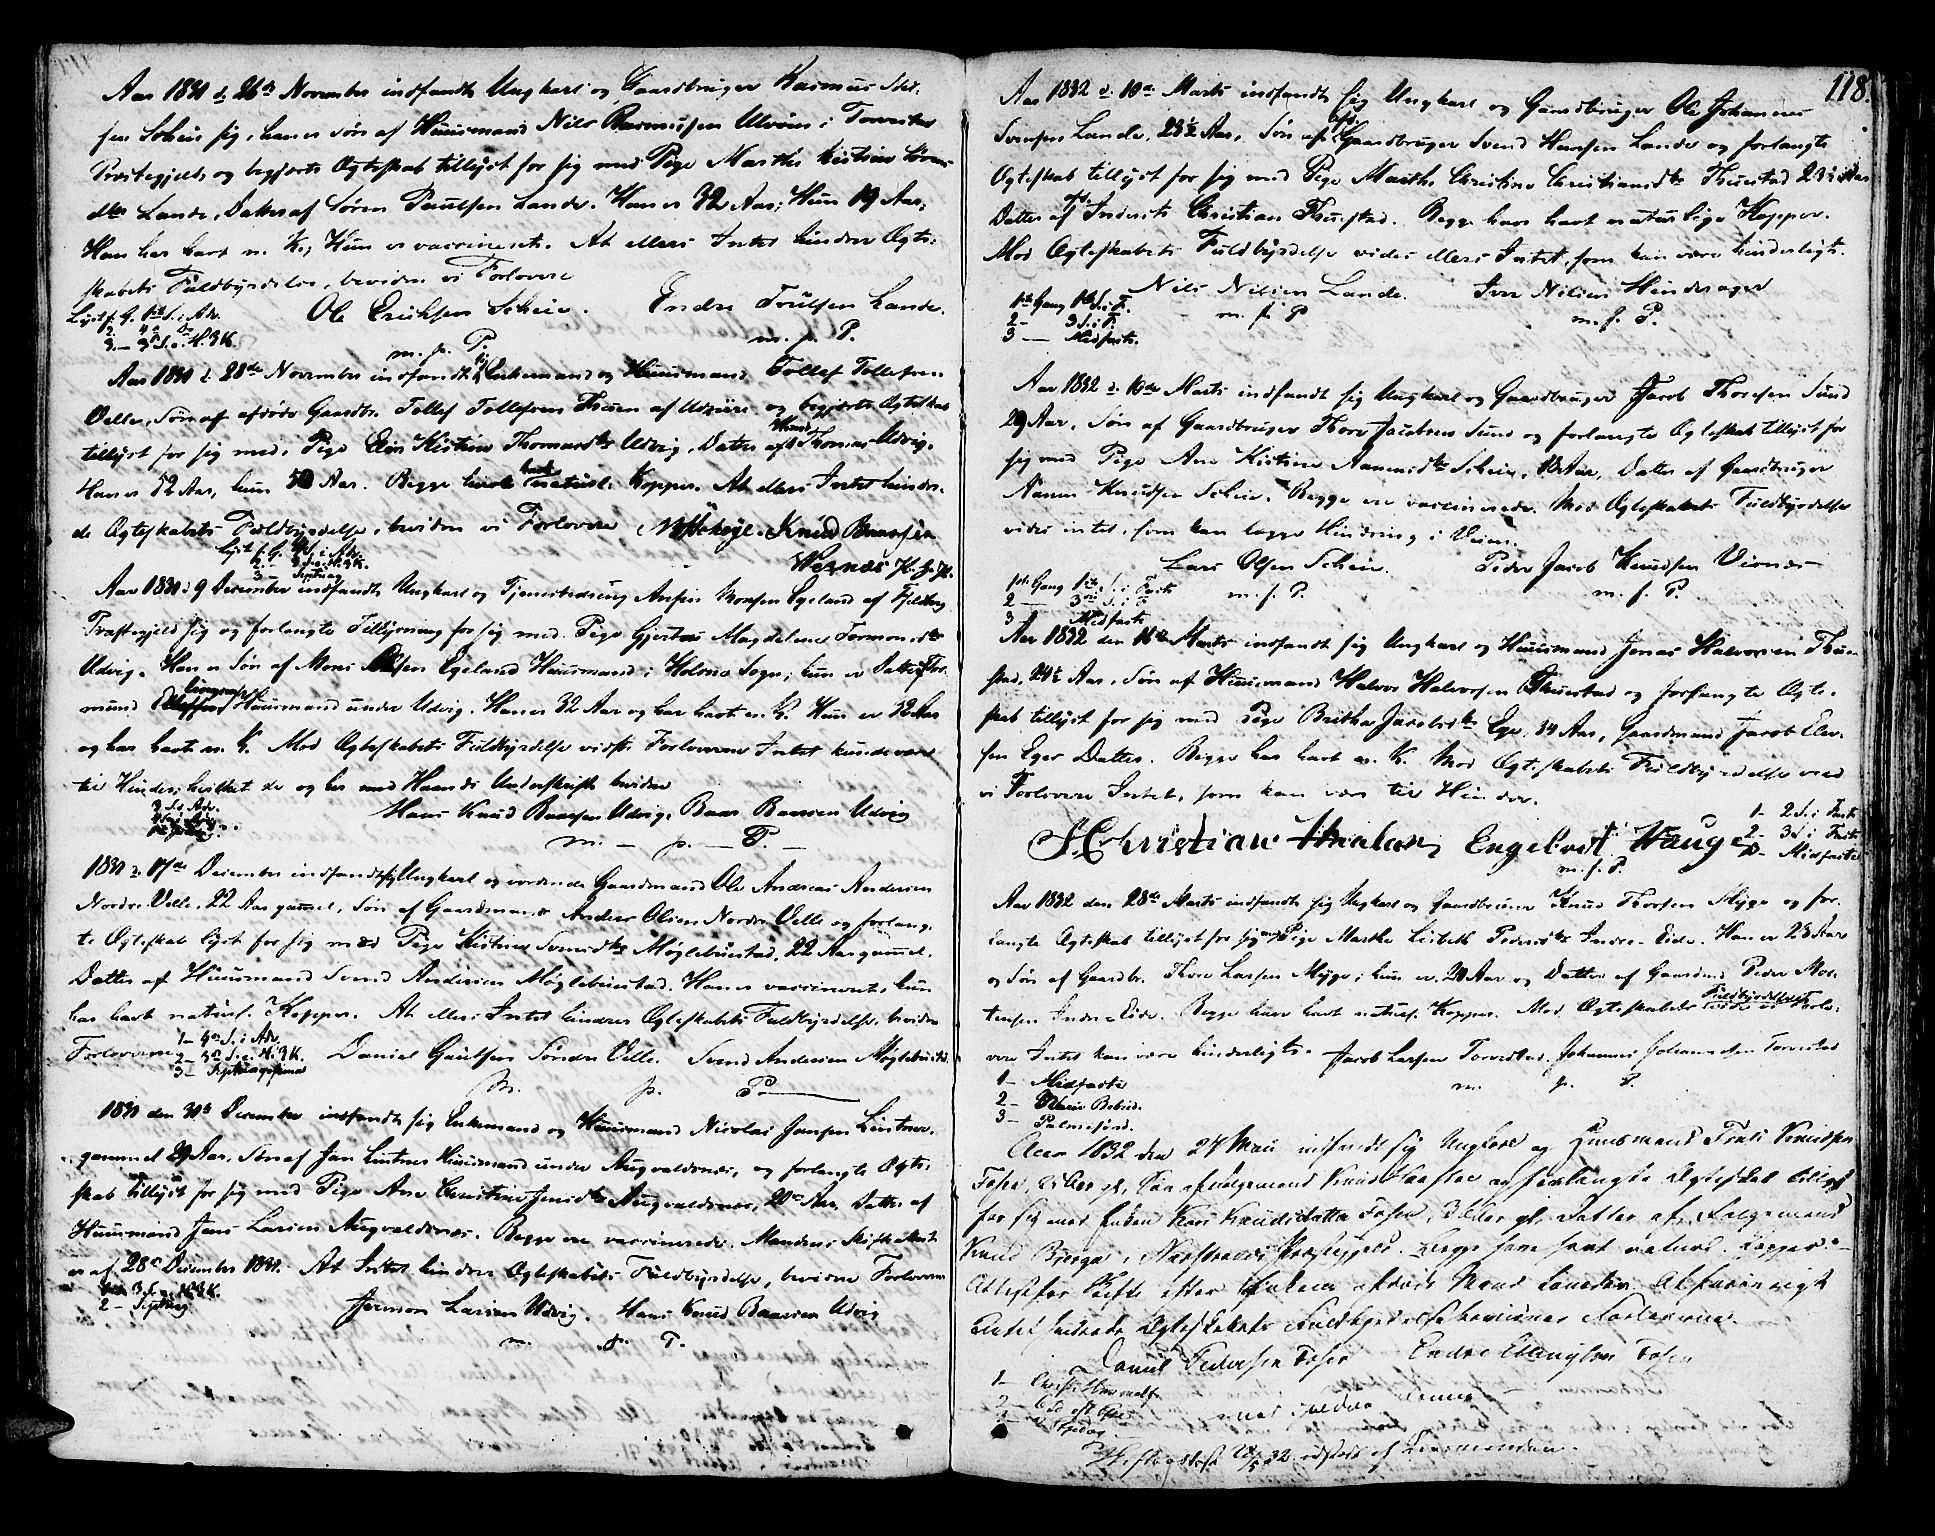 Aar 1831 d: 26de November indfandt Ungkarl og Gaardbruger Rasmus Nil-
sen Scheie sig, han er Søn af Huusmand Nils Rasmussen i Torvestad
Præstegjeld, og begjærte Ægteskab tillyst for sig med Pige Marthe Kistine Søren-
dtr Lande, Datter af Søren Paulsen Lande. Han er 32 Aar; Hun 19 Aar;
Han har havt n. K.; Hun er vaccineret. At ellers Intet hindrer Ægte-
skabets Fuldbyrdelse, bevidne vi Forlovere
Lyst f. G. 1ste S. i Adv.
2 - 4de Do
3 - 3die S. e. H.3K.
Ole Eriksen Scheie. Endre Troulsen Lande.
m. p. P. m. p. P.
Aar 1831 d: 28de November indfandt sig Enkemand og Huusmand Tollef Tollefsen
Velle, Søn af afdøde Gaardbr. Tollef Tollefsen af og begjærte Ægteskab
tillyst for sig med Pige Elen Kistine Thomasdtr Udvig, Datter af Huusmd Thomas Udvig.
Han er 52 Aar, hun 50 Aar. Begge havde naturl. Kopper. At ellers Intet hindre-
de Ægteskabets Fuldbyrdelse, bevidne vi Forlovere Knud Baarsen
Lyst f. G. 4 S. i Adv.
2 - 3 S. e. H.3K.
3 - Septuag
Aar 1831 d: 9 December indfandt Ungkarl og Tjenestedreng Monsen Egeland af Fjelberg
Præstegjeld sig og forlangte Tillysning for sig med Pige Gjertrud Magdalene Tormodsdtr
Udvig. Han er Søn af Mons Egeland Huusmand i Sogn; hun er Datter af Tor-
mund Huusmand under Udvig. Han er 32 Aar og har havt n. K. Hun er 32 Aar
og har havt n. K. Mod Ægteskabets Fuldbyrdelse vidste Forloverne Intet kunde være
til Hinder; hvilket de og her med Haands Underskrift bevidne
3 S. i Adv.
4 S. i Adv.
Hans Knud Baarsen Udvig. Baar Baarsen Udvig
m. - p. - P. -
1831 d: 17de December indfandt sig Ungkarl og vordende Gaardmand Ole Andreas Andersen
Nordre Velle, 22 Aar gammel, Søn af Gaardmand Anders Olsen Nordre Velle og forlang-
te Ægteskab lyst for sig med Pige Kistine Svendsdtr Møglebustad, 22 Aar gammel,
Datter af Huusmand Svend Andersen Møglebustad. Han er vaccineret, hun
har havt naturl. Kopper. At ellers Intet hindrer Ægteskabets Fuldbyrdelse, bevidne
Forloverne
1 - 4de S. i Adv.
2 - 3de S. e. H.3K.
3 - Septuagesima
Daniel Søndre Velle. Svend Andersen Møglebustad.
m. p. P.
1831 den 31te December indfandt sig Enkemand og Huusmand Nicolai Jansen Lintner,
gammel 29 Aar, Søn af Jan Lintner Huusmand under Augvaldsnæs, og forlangte Ægte-
skab tillyst for sig med Pige Ane Christine Jensdtr Augvaldsnæs, 20 Aar, Datter af
Huusmand Jens Larsen Augvaldsnæs. Begge ere vaccinerede. Mandens Skifteattest
er af 28de December 1831. At Intet hindrer Ægteskabets Fuldbyrdelse, bevidne Forloverne
3 S. e. H3K.
2 - Septuag
Larsen Udvig. Hans Knud Baarsen Udvig
m. p. P.
118.
Aar 1832 d: 10de Marts indfandt sig Ungkarl og Gaardbruger Ole Johannes
Svendsen Lande, 23½ Aar, Søn af Gaardbruger Svend Hansen Lande og forlangte
Ægteskab tillyst for sig med Pige Marthe Christine Christiansdtr Thuestad 23½ Aar
Datter af Inderst Christian Thuestad. Begge have havt naturlige Kopper.
Mod Ægteskabets Fuldbyrdelse vides ellers Intet, som kan være hinderligt.
1ste Gang 1ste S. i F.
2 - 3 S. i F.
3 - Midfaste.
Nils Nilsen Lande. Iver Nilsen Hinderager
m. f. P. m. f. P.
Aar 1832 d: 10de Marts indfandt sig Ungkarl og Gaardbruger Jacob Thorsen Sund
29 Aar, Søn af Gaardbruger Thore Jacobsen Sund og forlangte Ægteskab tillyst for
sig med Pige Ane Kistine Aamundsdtr Scheie, Aar, Datter af Gaardbruger
Knudsen Scheie. Begge ere vaccinerede. Mod Ægteskabets Fuldbyrdelse
vides intet, som kan lægge Hindring i Veien.
Lars Olsen Scheie. Peder Jacob Knudsen Visnæs
1ste Gang 1ste S. i Faste
2 - 3die S. i F.
3 Midfaste
m. f. P. m. f. P.
Aar 1832 den 16de Marts indfandt sig Ungkarl og Huusmand Jonas Halvorsen Thue-
stad, 24½ Aar, Søn af Huusmand Halvor Halvorsen Thuestad og forlangte Ægte-
skab tillyst for sig med Pige Britha Jacobsdtr Ege, 34 Aar, Gaardmand Jacob
sen Eges Datter. Begge har havt n. K. Mod Ægteskabets Fuldbyrdelse veed
vi Forlovere Intet, som kan være til Hinder.
1 - 2 S. i Faste
2 - 3 S. i Faste
3 - Midfaste
H Christian Engelbret Hauge
m. f. P.
Aar 1832 den 28de Marts indfandt sig Ungkarl og Gaardbruger Knud Thorsen Myge og for-
langte Ægteskab tillyst for sig med Pige Marthe Lisbeth Pedersdtr Indre-Eide. Han er 23 Aar
og Søn af Gaardbr. Thore Larsen Myge; hun er 20 Aar og Datter af Gaardmd Peder Mor-
tensen Indre-Eide. Begge have havt naturl. Kopper. Mod Ægteskabets Fuldbyrdelse vide vi Forlo-
vere Intet kan være hinderligt. Jacob Larsen Torvestad. Johannes Johannesen Torvestad
m. p. P.
1 - Midfaste
2 - Mariæ Bebud.
3 - Palmesønd.
Aar 1832 den 24 Mai indfandt sig Ungkarl og Huusmand Knudsen
Fosen, Aar gl., Søn af Knud og forlangte Ægteskab tillyst
for sig med Enken Kari Knudsdatter Fosen, Aar gl., Datter af
Knud Bjerga, Nærstrands Præstegjeld. Begge have havt naturl. Kopper.
Attest for Skifte efter Enkens afdøde Mand
Intet hindrede Ægteskabets Fuldbyrdelse bevidner Forloverne.
Daniel Pedersen Fosen Endre Fosen
1 - Christi Himmelf
2 -
3 -
med Pen
28/5 32 udstedt af Lensmanden.